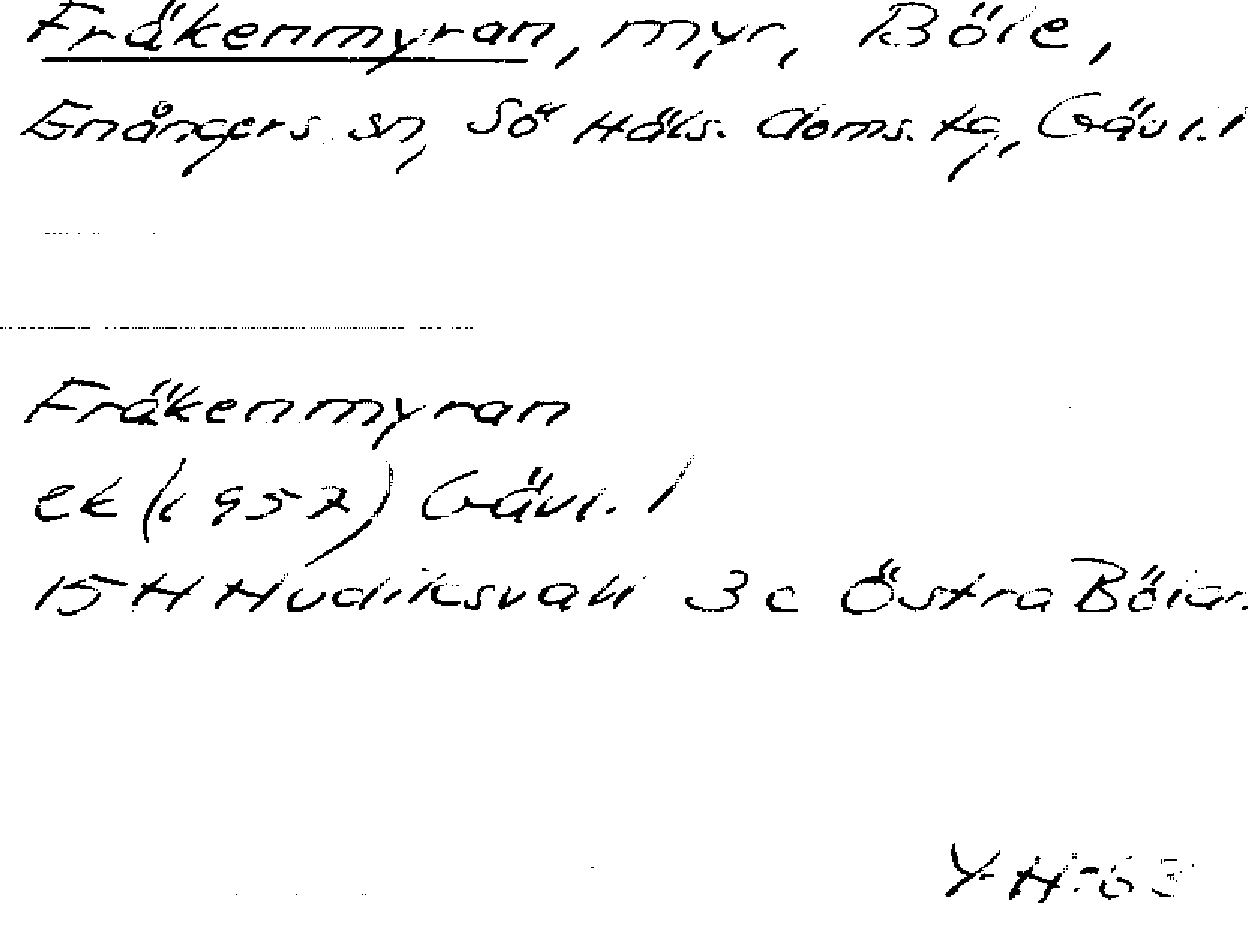 Fräkenmyran, myr, Böle,
Enångers sn, Sö Häls. doms. tg, Gävl. l
Fräkenmyran
ek (1957) Gävl. l
15 H Hudiksvall 3 c Östra Bölan.
Y H-63